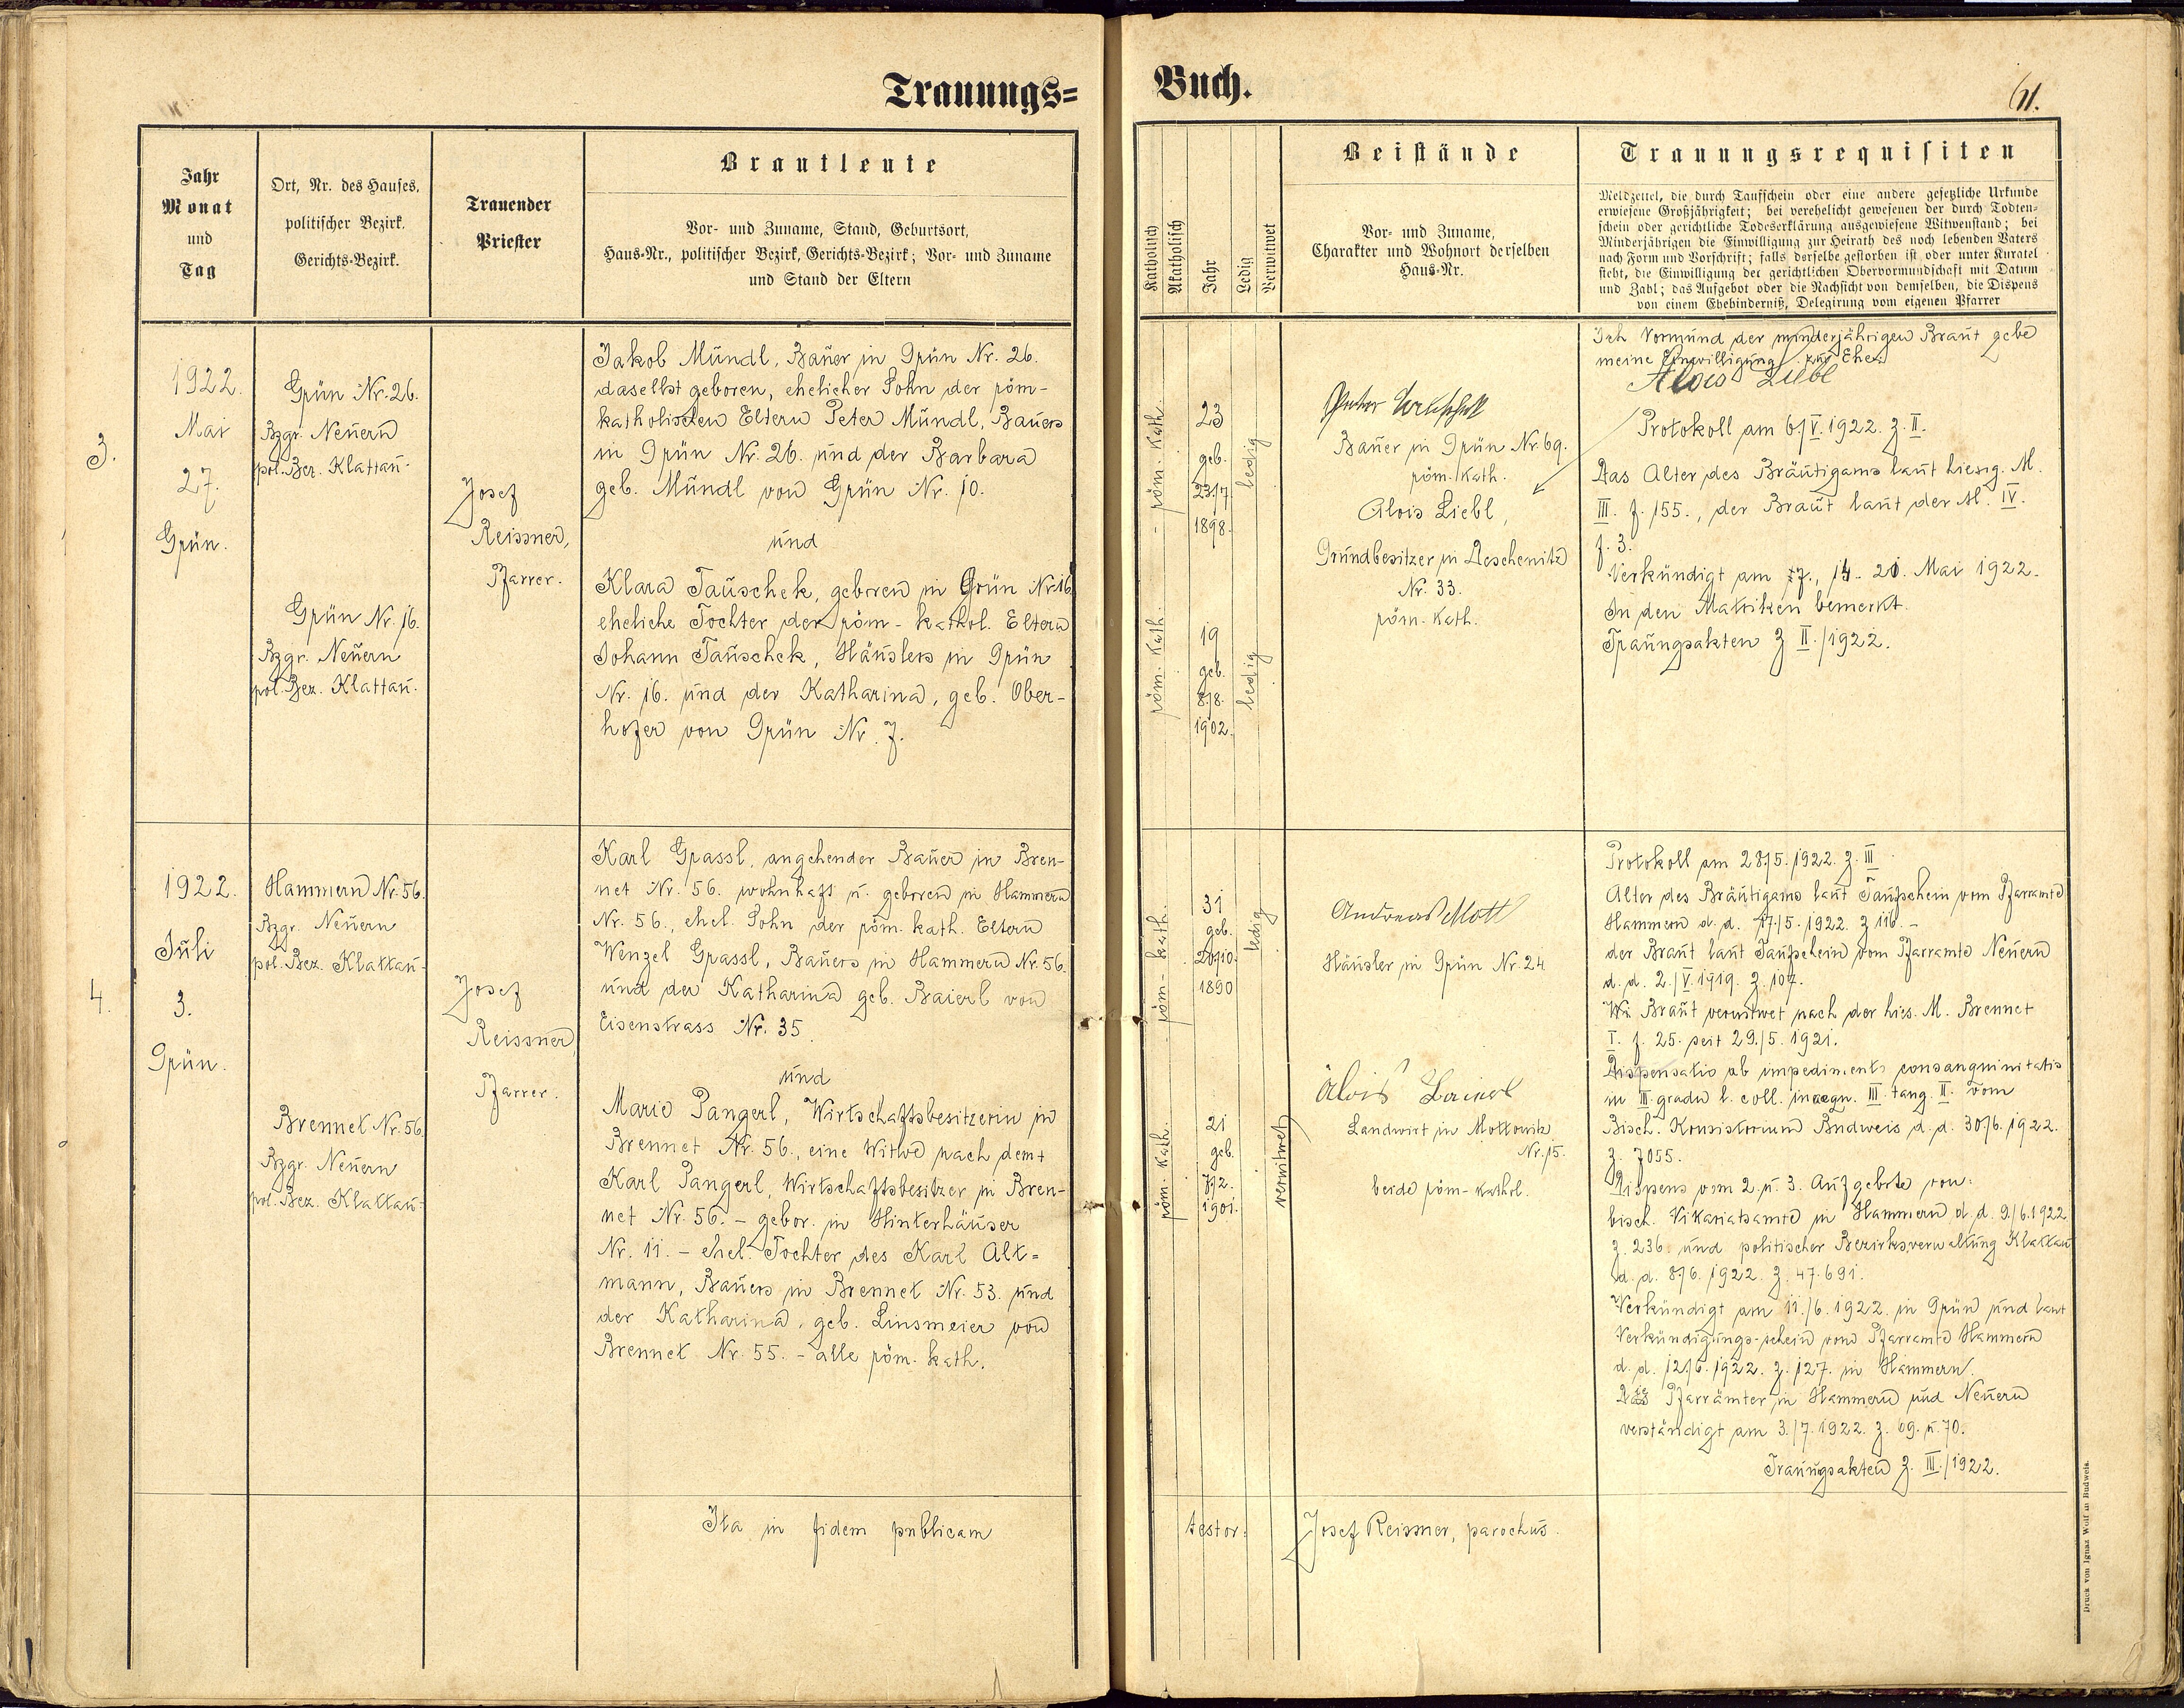 Trauungs=
Jahr
Monat
und
Tag
Ort, Nr. des Hauses,
politischer Bezirk,
Gerichts-Bezirk.
Trauender
Priester
Brautleute
Vor- und Zuname, Stand, Geburtsort,
Haus-Nr., politischer Bezirk, Gerichts-Bezirk; Vor- und Zuname
und Stand der Eltern
3.
1922.
Mai
27.
Grün.
Grün Nr. 26.
Bzgr. Neuern
pol. Bez. Klattau.
Grün Nr. 16.
Bzgr. Neuern
pol. Bez. Klattau.
Josef
Reissner,
Pfarrer.
Jakob Mündl, Bauer in Grün Nr. 26.
daselbst geboren, ehelicher Sohn der röm-
katholischen Eltern Peter Mündl, Bauers
in Grün Nr. 26. und der Barbara
geb. Mündl von Grün Nr. 10.
und
Klara Tauschek, geboren in Grün Nr. 16
eheliche Tochter der röm- kathol. Eltern
Johann Tauschek, Häuslers in Grün
Nr. 16. und der Katharina, geb. Ober-
hofer von Grün Nr. 7.
4.
1922.
Juli
3.
Grün.
Hammern Nr. 56.
Bzgr. Neuern
pol. Bez. Klattau.
Brennet Nr. 56.
Bzgr. Neuern
pol. Bez. Klattau.
Josef
Reissner,
Pfarrer.
Karl Grassl, angehender Bauer in Bren-
net Nr. 56. wohnhaft u. geboren in Hammern
Nr. 56., ehel. Sohn der röm. kath. Eltern
Wenzel Grassl, Bauers in Hammern Nr. 56.
und der Katharina geb. Baierl von
Eisenstrass Nr. 35.
und
Marie Pangerl, Wirtschaftsbesitzerin in
Brennet Nr. 56., eine Witwe nach dem +
Karl Pangerl, Wirtschaftsbesitzer in Bren-
net Nr. 56. - gebor. in Hinterhäuser
Nr. 11. - ehel. Tochter des Karl Alt-
mann, Bauers in Brennet Nr. 53. und
der Katharina, geb. Linsmeier von
Brennet Nr. 55. - alle röm. kath.
Ita in fidem publicam
Buch.
61.
Katholisch
Akatholisch
Jahr
Ledig
Verwitwet
Beistände
Vor- und Zuname,
Charakter und Wohnort derselben
Haus-Nr.
Trauungsrequisiten
Meldzettel, die durch Taufschein oder eine andere gesetzliche Urkunde
erwiesene Großjährigkeit; bei verehelicht gewesenen der durch Todten-
schein oder gerichtliche Todeserklärung ausgewiesene Witwenstand; bei
Minderjährigen die Einwilligung zur Heirath des noch lebenden Vaters
nach Form und Vorschrift; falls derselbe gestorben ist oder unter Kuratel
steht, die Einwilligung der gerichtlichen Obervormundschaft mit Datum
und Zahl; das Aufgebot oder die Nachsicht von demselben, die Dispens
von einem Ehehinderniß, Delegirung vom eigenen Pfarrer
röm. kath.
23
geb.
23/7.
1898.
ledig
röm. kath.
19
geb.
8./8.
1902.
ledig
Bauer in Grün Nr. 69.
röm. kath.
Alois Liebl,
Grundbesitzer in Deschenitz
Nr. 33.
röm. kath.
Ich Vormund der minderjährigen Braut gebe
meine Einwilligung zur Ehe.
Alois Liebl
Protokoll am 6/V. 1922. z. II.
Das Alter des Bräutigams laut hiesig. M.
III. f. 155., der Braut laut der M. IV.
f. 3.
Verkündigt am 7., 14. 21. Mai 1922.
In den Matriken bemerkt.
Trauungsakten z II./1922.
röm. kath.
31
geb.
20/10.
1890
ledig
röm. kath.
21
geb.
7/2.
1901.
verwitwet
Andreas Mott
Häusler in Grün Nr. 24
Alois
Landwirt in Mottowitz
Nr. 15.
beide röm- kathol.
Protokoll am 28/5. 1922. z. III
Alter des Bräutigams laut Taufschein vom Pfarramte
Hammern d. d. 17./5. 1922. z 116. -
der Braut laut Taufschein vom Pfarramte Neuern
d. d. 2./V. 1919. z. 107.
Braut verwitwet nach der hies. M. Brennet
I. f. 25. seit 29./5. 1921.
Dispensatio ab impedimento consanguinitatis
in III. gradu l. coll. inaequ. III. tang. II. vom
Bisch. Konsistorium Budweis d. d. 30./6. 1922.
z. 7055.
Dispens vom 2. u. 3. Aufgebote von:
bisch. Vikariatsamte in Hammern d. d. 9./6. 1922
z. 236. und politischer Bezirksverwaltung Klattau
d. d. 8/6. 1922. z. 47.691.
Verkündigt am 11./6. 1922. in Grün und laut
Verkündigungs-schein vom Pfarramte Hammern
d. d. 12./6. 1922. z. 127. in Hammern.
Pfarrämter in Hammern und Neuern
verständigt am 3./7. 1922. z. 69. u. 70.
Trauungsakten z. III./1922.
testor:
Josef Reissner, parochus.
Druck von Ignaz Wolf in Budweis.